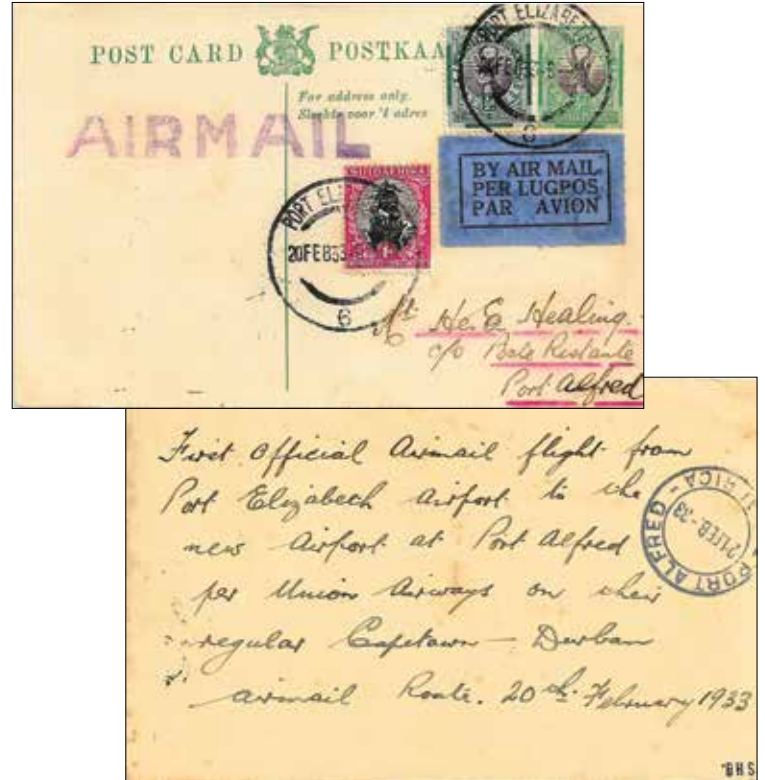 POST CARD POSTKAA
For address only.
Slegs voor 'l adres
AIRMAIL
PORT ELIZABETH
20 FEB 33
6
BY AIR MAIL
PER LUGPOS
PAR AVION
PORT ELIZ
20FEB33
6
H. E. Healing
c/o Poste Restante
Port Alfred
First Official Airmail flight from
Port Elizabeth Airport to the
new Airport at Port Alfred
per Union Airways on their
regular Capetown — Durban
airmail Route. 20th February 1933
PORT ALFRED
21 FEB - 33
BHS